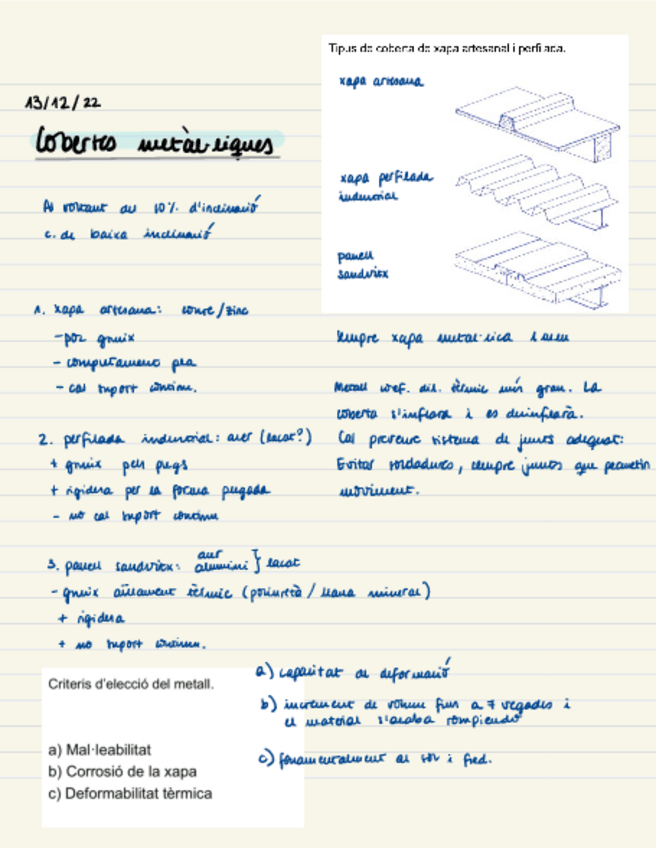 Tipus de coberta de xapa artesanal i perfilada.
xapa artesana
13/12/22
Cobertes metàl·liques
xapa perfilada
industrial
Al voltant del 10% d'inclinació
c. de baixa inclinació
panell
sandvitx
1. xapa artesana: coure/zinc
- poc gruix
- comportament pla
- cal suport continu.
Sempre xapa metal·lica i
Metall coef. dil. tèrmic més gran. La
coberta s'inflarà i es desinflarà.
Cal preveure sistema de junts adequat:
Evitar soldadures, sempre junts que permetin
moviment.
2. perfilada industrial: acer (lacat?)
+ gruix pels plegs
+ rigidesa per la forma plegada
- no cal suport continu
3. panell sandvitx: acer
alumini } lacat
- gruix aïllament tèrmic (poliuretà / llana mineral)
+ rigidesa
+ no suport continu.
Criteris d'elecció del metall.
a) Mal·leabilitat
b) Corrosió de la xapa
c) Deformabilitat tèrmica
a) capacitat de deformació
b) increment de volum fins a 7 vegades i
el material s'acaba rompiendo
c) fonamentalment al sol i fred.